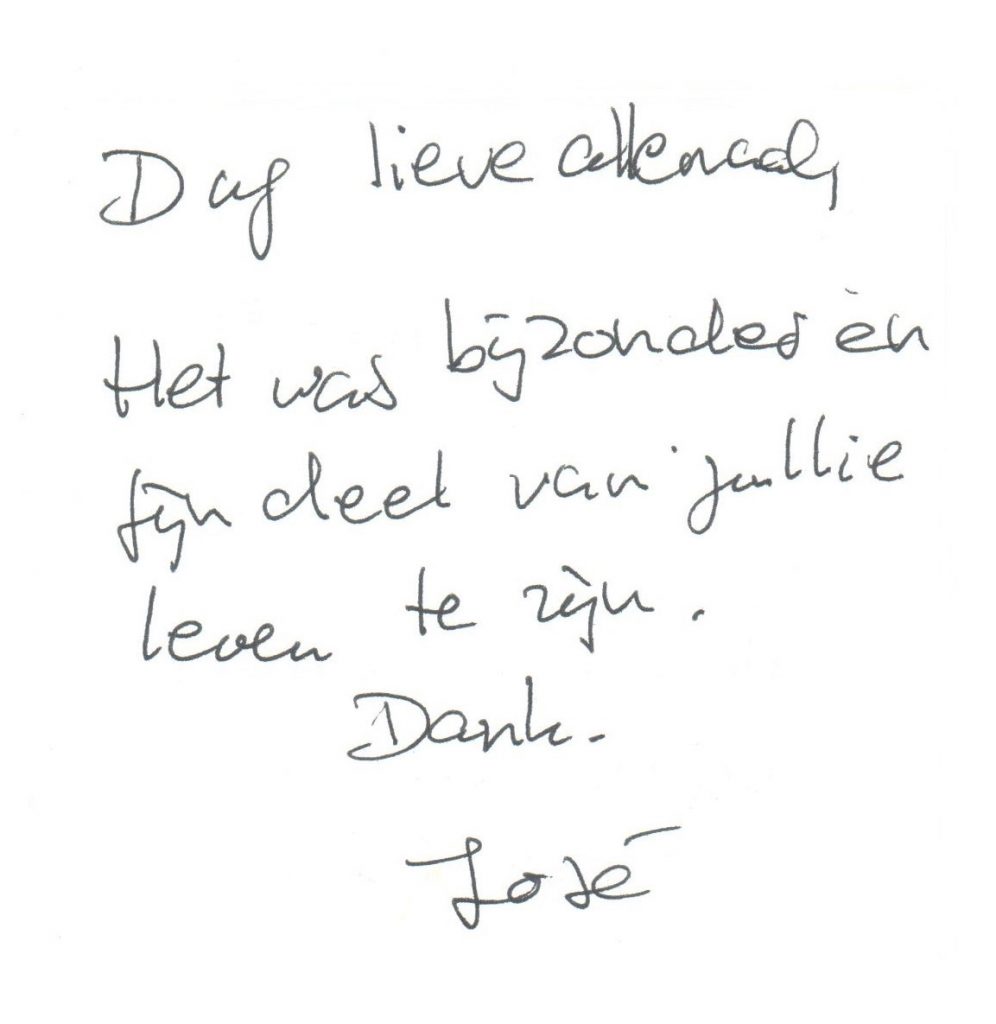 Dag lieve allemaal,
Het was bijzonder èn
fijn deel van jullie
leven te zijn.
Dank.
José